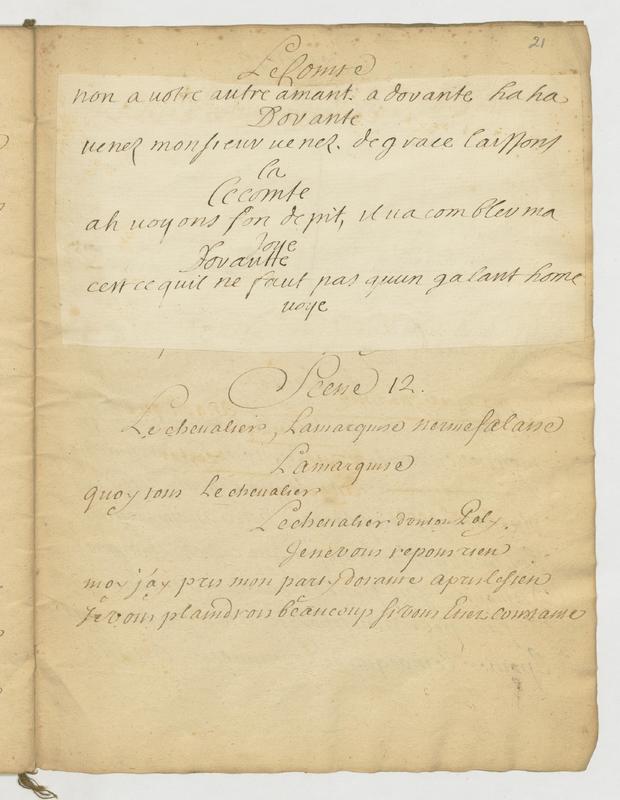 21
Le Comte
non a votre autre amant. a dorante ha ha
Dorante
venez monsieur venez. de grace laissons
la
le comte
ah voyons son depit, il va combler ma
joye
Dorante
cest ce quil ne faut pas quun galant home
voye
Scene 12.
Le chevalier, Lamarquise
Lamarquise
quoy vous Le chevalier
Le chevalier
Je ne vous repons rien
moy j'ay pris mon party dorante a pris le sien
Je vous plaindrois beaucoup si vous Etiez constante